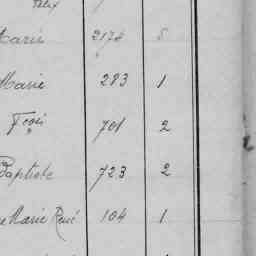 Marie 2174 5
Marie 283 1
Fçois 701 2
Baptiste 723 2
Marie René 104 1